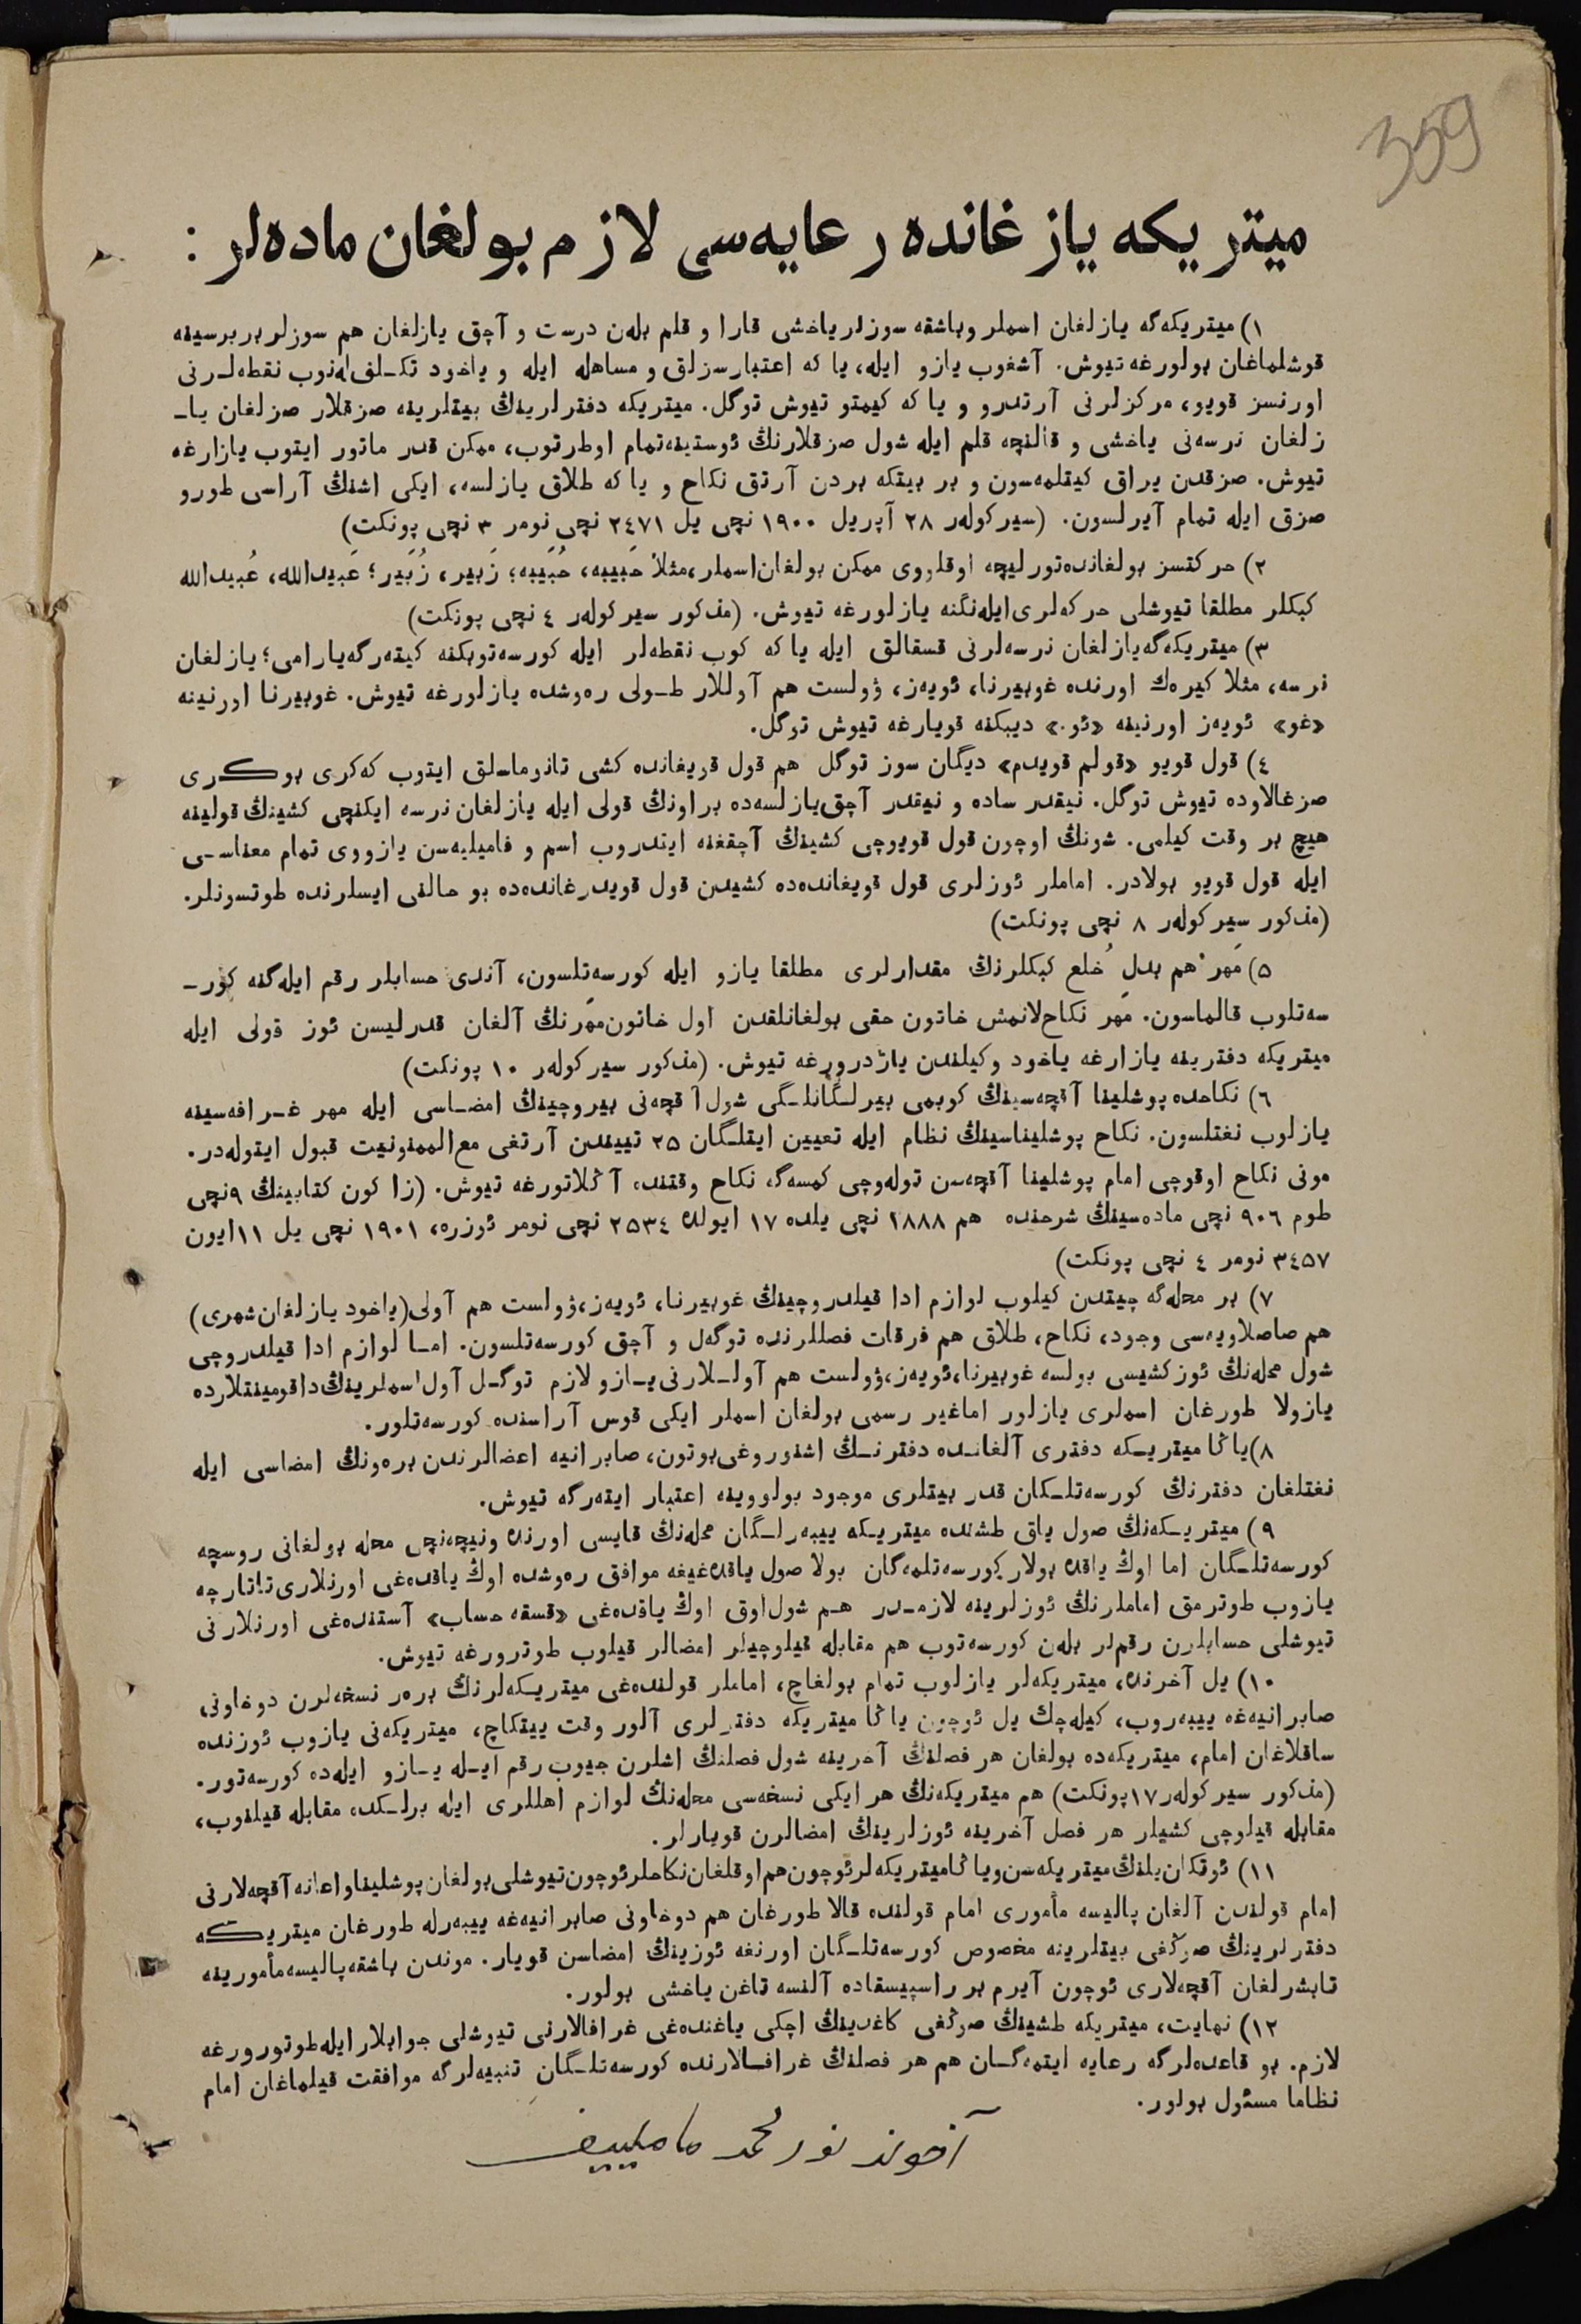 359
ميتريكه يازغانده رعايه‌سى لازم بولغان ماده‌لر :
١) ميتريكه‌گه يازلغان اسملر وباشقه سوزلر ياخشى قارا و قلم بله‌ن درست و آچق يازلغان هم سوزلر بربرسينه
قوشلماغان بولورغه تيوش. آشغوب يازو ايله، يا كه اعتبارسزلق و مساهله ايله و ياخود تكـلف‌له‌نوب نقطه‌لـرنى
اورنسز قويو، مركزلرنى آرتدرو و يا كه كيمتو تيوش توگل. ميتريكه دفترلرينڭ بيتلرينه صزقلار صزلغان يا-
زلغان نرسه‌نى ياخشى و قالنچه قلم ايله شول صزقلارنڭ ئوستينه‌تمام اوطرتوب، ممكن قدر ماتور ايتوب يازارغه
تيوش. صزقدن يراق كيتلمه‌سون و بر بيتكه بردن آرتق نكاح و يا كه طلاق يازلسه، ايكى اشنڭ آراسى طورو
صزق ايله تمام آيرلسون. (سيركوله‌ر ٢٨ آپريل ١٩٠٠ نچى يل ٢٤٧١ نچى نومر ٣ نچى پونكت)
٢) حركتسز بولغانده‌تورليچه اوقلووى ممكن بولغان‌اسملر،مثلا حَبيبه، حُبَيبه؛ زَبير، زُبَير؛ عَبيدالله، عُبيدالله
كبكلر مطلقا تيوشلى حركه‌لرى‌ايله‌نگنه يازلورغه تيوش. (مذكور سيركوله‌ر ٤ نچى پونكت)
٣) ميتريكه‌گه‌يازلغان نرسه‌لرنى قسقالق ايله يا كه كوب نقطه‌لر ايله كورسه‌توبكنه كيته‌رگه‌يارامى؛ يازلغان
نرسه، مثلا كيره‌ك اورنده غوبيرنا، ئويه‌ز، ۋولست هم آوللار طـولى ره‌وشده يازلورغه تيوش. غوبيرنا اورنينه
«غو» ئويه‌ز اورنينه «ئو.» ديبكنه قويارغه تيوش توگل.
٤) قول قويو «قولم قويدم» ديگان سوز توگل هم قول قويغانده كشى تانوماسلق ايتوب كه‌كرى بوكـرى
صزغالاوده تيوش توگل. نيقدر ساده و نيقدر آچق‌يازلسه‌ده براونڭ قولى ايله يازلغان نرسه ايكنچى كشينڭ قولينه
هيچ بر وقت كيلمى. شونڭ اوچون قول قويوچى كشينڭ آچقغنه ايتدروب اسم و فاميليه‌سن يازووى تمام معناسـى
ايله قول قويو بولادر. اماملر ئوزلرى قول قويغانده‌ده كشيدن قول قويدرغانده‌ده بو حالنى ايسلرنده طوتسونلر.
(مذكور سيركوله‌ر ٨ نچى پونكت)
٥) مَهر هم بدلِ خُلع كبكلرنڭ مقدارلرى مطلقا يازو ايله كورسه‌تلسون، آندى حسابلر رقم ايله‌گنه كور-
سه‌تلوب قالماسون. مَهر نكاح‌لانمش خاتون حقى بولغانلقدن اول خاتون‌مهرنڭ آلغان قدرليسن ئوز قولى ايله
ميتريكه دفترينه يازارغه ياخود وكيلندن يازدرورغه تيوش. (مذكور سيركوله‌ر ١٠ پونكت)
٦) نكاحده پوشلينا آقچه‌سينڭ كوبمى بيرلـگانلـگى شول آقچه‌نى بيروچينڭ امضـاسى ايله مهر غـرافه‌سينه
يازلوب نغتلسون. نكاح پوشليناسينڭ نظام ايله تعيين ايتلـگان ٢٥ تييندن آرتغى مع‌الممنونيت قبول ايتوله‌در.
مونى نكاح اوقوچى امام پوشلينا آقچه‌سن توله‌وچى كمسه‌گه نكاح وقتنده آڭلاتورغه تيوش. (زاكون كتابينڭ ٩نچى
طوم ٩٠٦ نچى ماده‌سينڭ شرحنده هم ١٨٨٨ نچى يلده ١٧ ايولده ٢٥٣٤ نچى نومر ئوزره، ١٩٠١ نچى يل ١١ايون
٣٤٥٧ نومر ٤ نچى پونكت)
٧) بر محله‌گه چيتدن كيلوب لوازم ادا قيلدروچينڭ غوبيرنا، ئويه‌ز،ۋولست هم آولى(ياخود يازلغان‌شهرى)
هم صاصلاويه‌سى وجود، نكاح، طلاق هم فرقات فصللرنده توگه‌ل و آچق كورسه‌تلسون. امـا لوازم ادا قيلدروچى
شول محله‌نڭ ئوزكشيسى بولسه غوبيرنا،ئويه‌ز،ۋولست هم آولـلارنى يـازو لازم توگـل آول اسملرينڭ‌داقومينتلارده
يازولا طورغان اسملرى يازلور اماغير رسمى بولغان اسملر ايكى قوس آراسنده كورسه‌تلور.
٨)ياڭا ميتريـكه دفترى آلغانـده دفترنـڭ اشنوروغى‌بوتون، صابرانيه اعضالرندن بره‌ونڭ امضاسى ايله
نغتلغان دفترنڭ كورسه‌تلـكان قدر بيتلرى موجود بولووينه اعتبار ايته‌رگه تيوش.
٩) ميتريـكه‌نڭ صول ياق طشنده ميتريـكه ييبه‌رلـگان محله‌نڭ قايسى اورنده ونيچه‌نچى محله بولغانى روسچه
كورسه‌تلـگان اما اوڭ ياقده بولار كورسه‌تلمه‌گان بولا صول ياقده‌غيغه موافق ره‌وشده اوڭ ياقده‌غى اورنلارى‌تاتارچه
يازوب طوترمق اماملرنڭ ئوزلرينه لازمـدر هـم شول‌اوق اوڭ ياقده‌غى «قسقه حساب» آستنده‌غى اورنلارنى
تيوشلى حسابلرن رقم‌لر بله‌ن كورسه‌توب هم مقابله قيلوچيلر امضالر قيلوب طوترورغه تيوش.
١٠) يل آخرنده ميتريكه‌لر يازلوب تمام بولغاچ، اماملر قولنده‌غى ميتريـكه‌لرنڭ بره‌ر نسخه‌لرن دوخاونى
صابرانيه‌غه ييبه‌روب، كيله‌چك يل ئوچون ياڭا ميتريكه دفترلرى آلور وقت ييتكاچ، ميتريكه‌نى يازوب ئوزنده
ساقلاغان امام، ميتريكه‌ده بولغان هر فصلنڭ آخرينه شول فصلنڭ اشلرن جيوب رقم ايـله يـازو ايله‌ده كورسه‌تور.
(مذكور سيركوله‌ر ١٧پونكت) هم ميتريكه‌نڭ هر ايكى نسخه‌سى محله‌نڭ لوازم اهللرى ايله برلـكده مقابله قيلنوب،
مقابله قيلوچى كشيلر هر فصل آخرينه ئوزلرينڭ امضالرن قويارلر.
١١) ئوتكان‌يلنڭ ميتريكه‌سن‌وياڭاميتريكه‌لرئوچون‌هم‌اوقلغان‌نكاحلرئوچون‌تيوشلى‌بولغان‌پوشليناواعانه‌آقچه‌لارنى
امام قولندن آلغان پاليسه مأمورى امام قولنده قالا طورغان هم دوخاونى صابرانيه‌غه ييبه‌رله طورغان ميتريـكه
دفترلرينڭ صوڭغى بيتلرينه مخصوص كورسه‌تلـگان اورنغه ئوزينڭ امضاسن قويار. موندن باشقه‌پاليسه‌مأمورينه
تابشرلغان آقچه‌لارى ئوچون آيرم بر راسپيسقاده آلنسه تاغن ياخشى بولور.
١٢) نهايت، ميتريكه طشينڭ صوڭغى كاغدينڭ اچكى ياغنده‌غى غرافالارنى تيوشلى جوابلار ايله‌طوتورورغه
لازم. بو قاعده‌لرگه رعايه ايتمه‌گـان هم هر فصلنڭ غرافـالارنده كورسه‌تلـگان تنبيه‌لرگه موافقت قيلماغان امام
نظاما مسئول بولور.
آخوند نورمحمد مامليیف